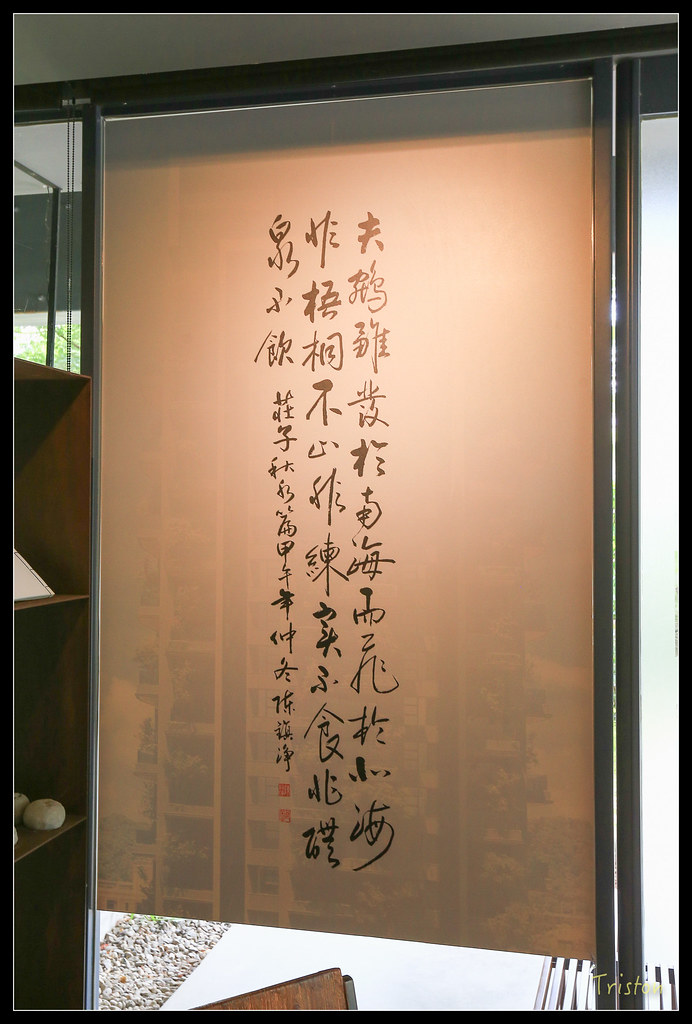 夫鵷雛發於南海而飛於北海
非梧桐不止非練實不食非醴
泉不飲
莊子秋水篇甲午年仲冬陳鎮淨
Triston